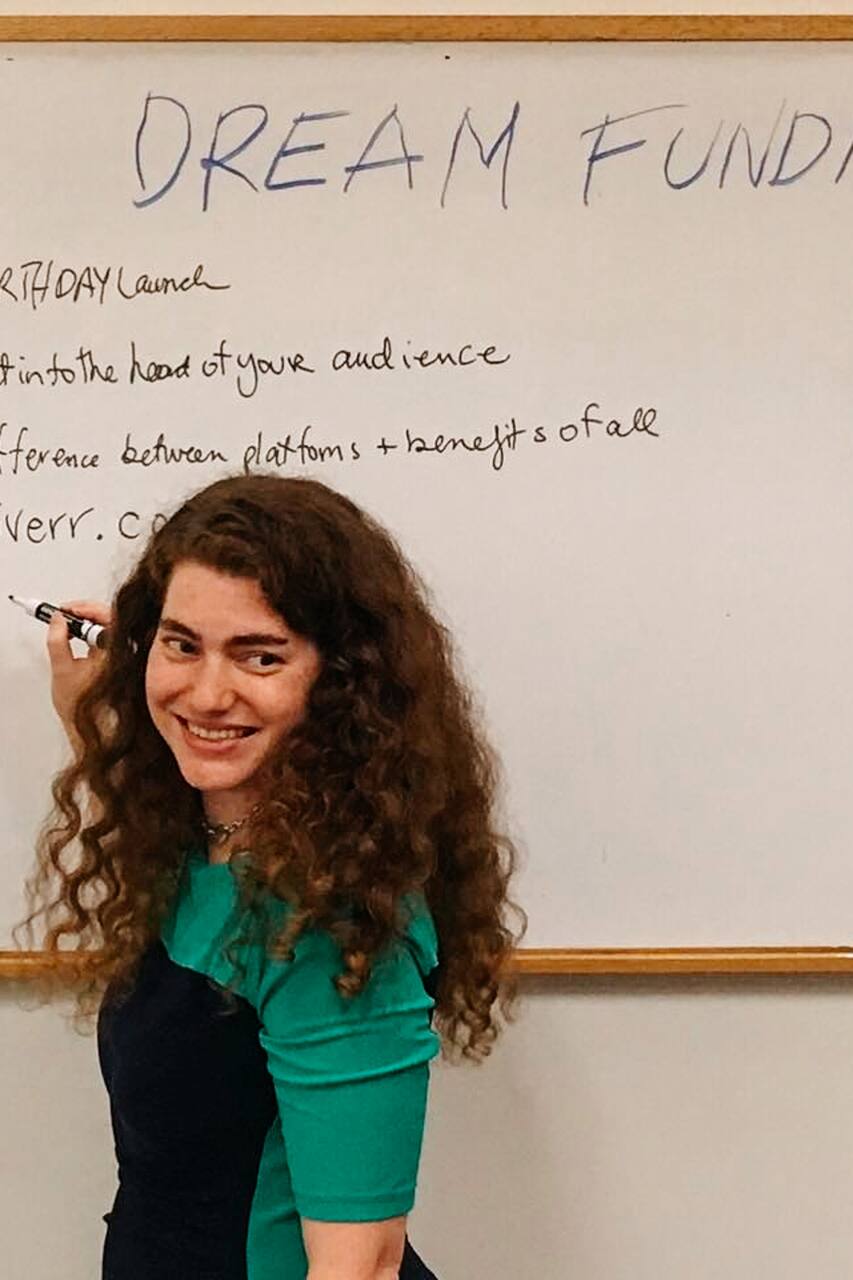 DREAM FUND
RTHDAY Launch
t into the head of your audience
fference between platfoms + benefits of all
verr.co